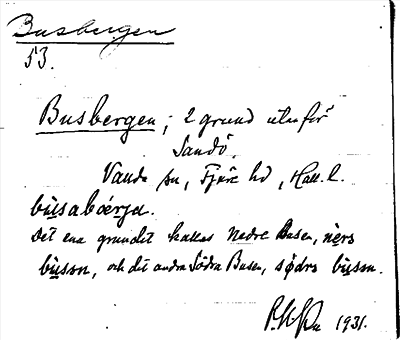 Busbergen
53.
Busbergen; 2 grund utanför
Sandö.
Vanda sn, Fjäre hd, Hall. l.
bùsabǿrja.
Det ena grundet kallas Nedre Busen, nèrs
bùssn, och det andra Södra Busen, sødrs bùssn.
1931.